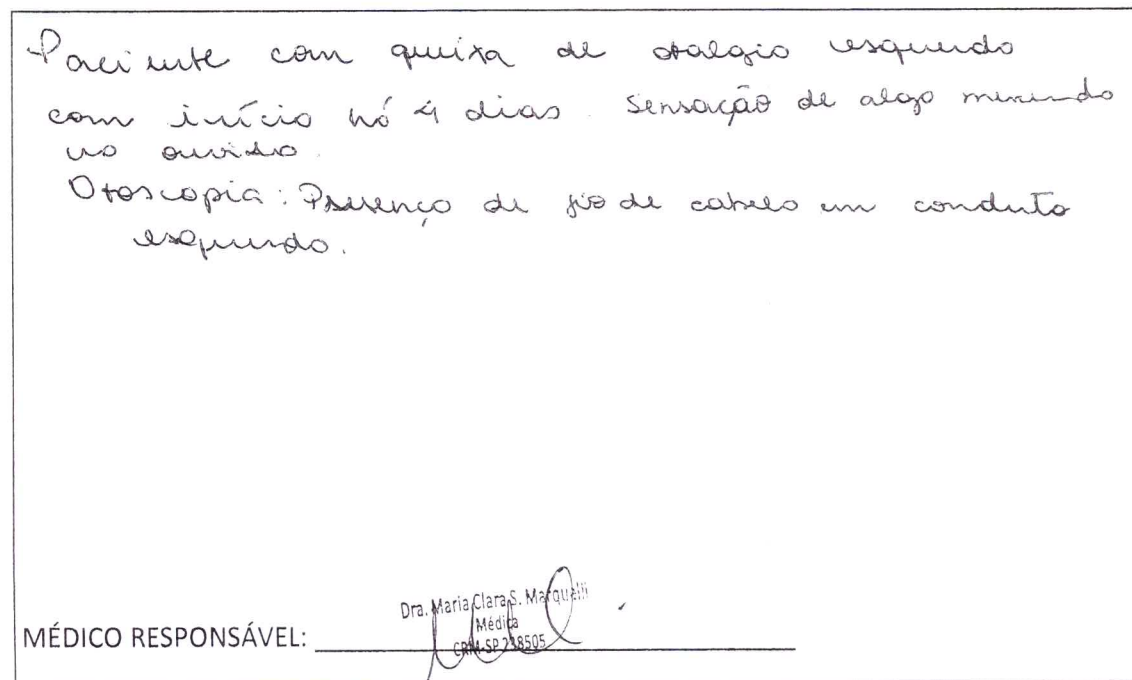 Paciente com queixa de otalgia esquerda
com início há 4 dias. Sensação de algo mexendo
no ouvido.
Otoscopia: Presença de fio de cabelo em conduto
esquerdo.
Dra. Maria Clara S. Marquelli
Médica
CRM-SP 238505
MÉDICO RESPONSÁVEL: